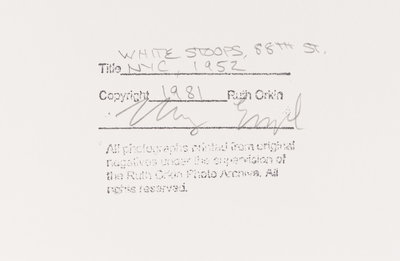 WHITE STOOPS, 88TH ST.
Title NYC, 1952
Copyright 1981 Ruth Orkin
Mary Engel
All photographs printed from original
negatives under the supervision of
the Ruth Orkin Photo Archive. All
rights reserved.